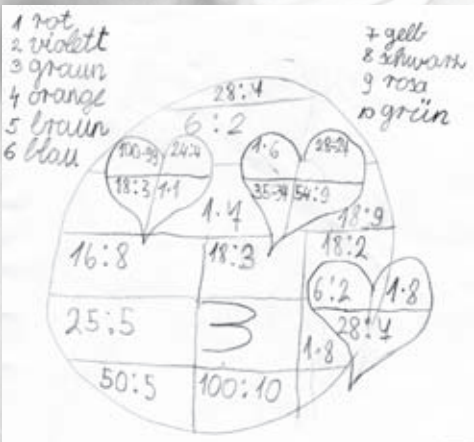 1 rot
2 violett
3 graun
4 orange
5 braun
6 blau
7 gelb
8 schwarz
9 rosa
10 grün
28:4
6:2
100-99 24:4
18:3 1·1
1·6 28-24
35-34 54:9
1·4
18:9
16:8
18:3
18:2
6:2 1·8
28:4
25:5
3
1·8
50:5
100:10